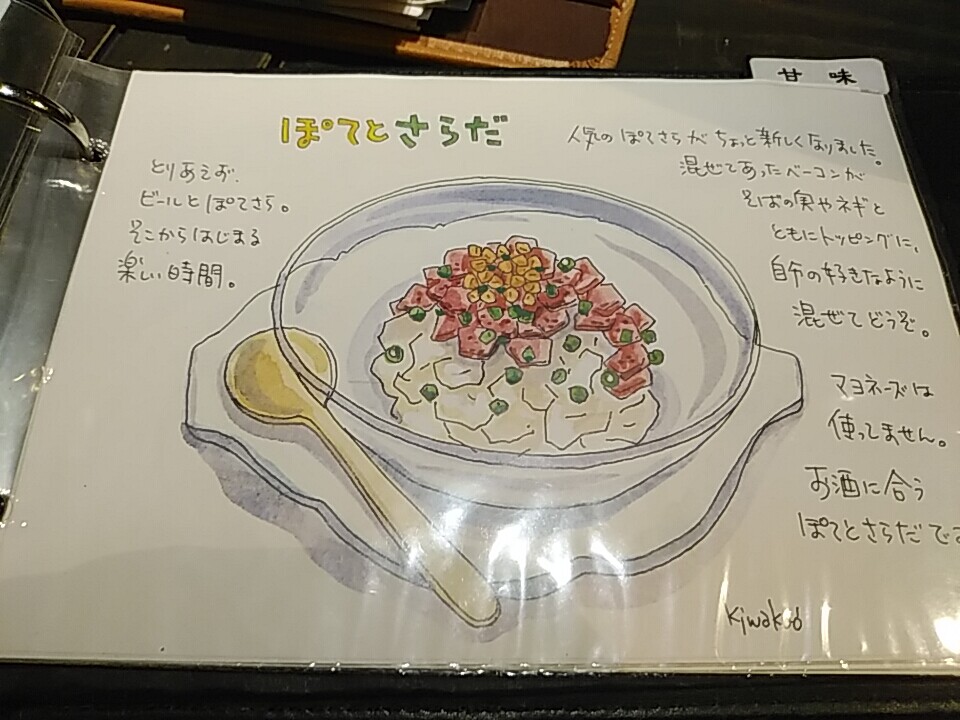 甘味
ぽてとさらだ
とりあえず、
ビールとぽてさら。
そこからはじまる
楽しい時間。
人気のぽてさらがちょっと新しくなりました。
混ぜてあったベーコンが
そばの実やネギと
ともにトッピングに、
自分の好きなように
混ぜてどうぞ。
マヨネーズは
使ってません。
お酒に合う
ぽてとさらだです